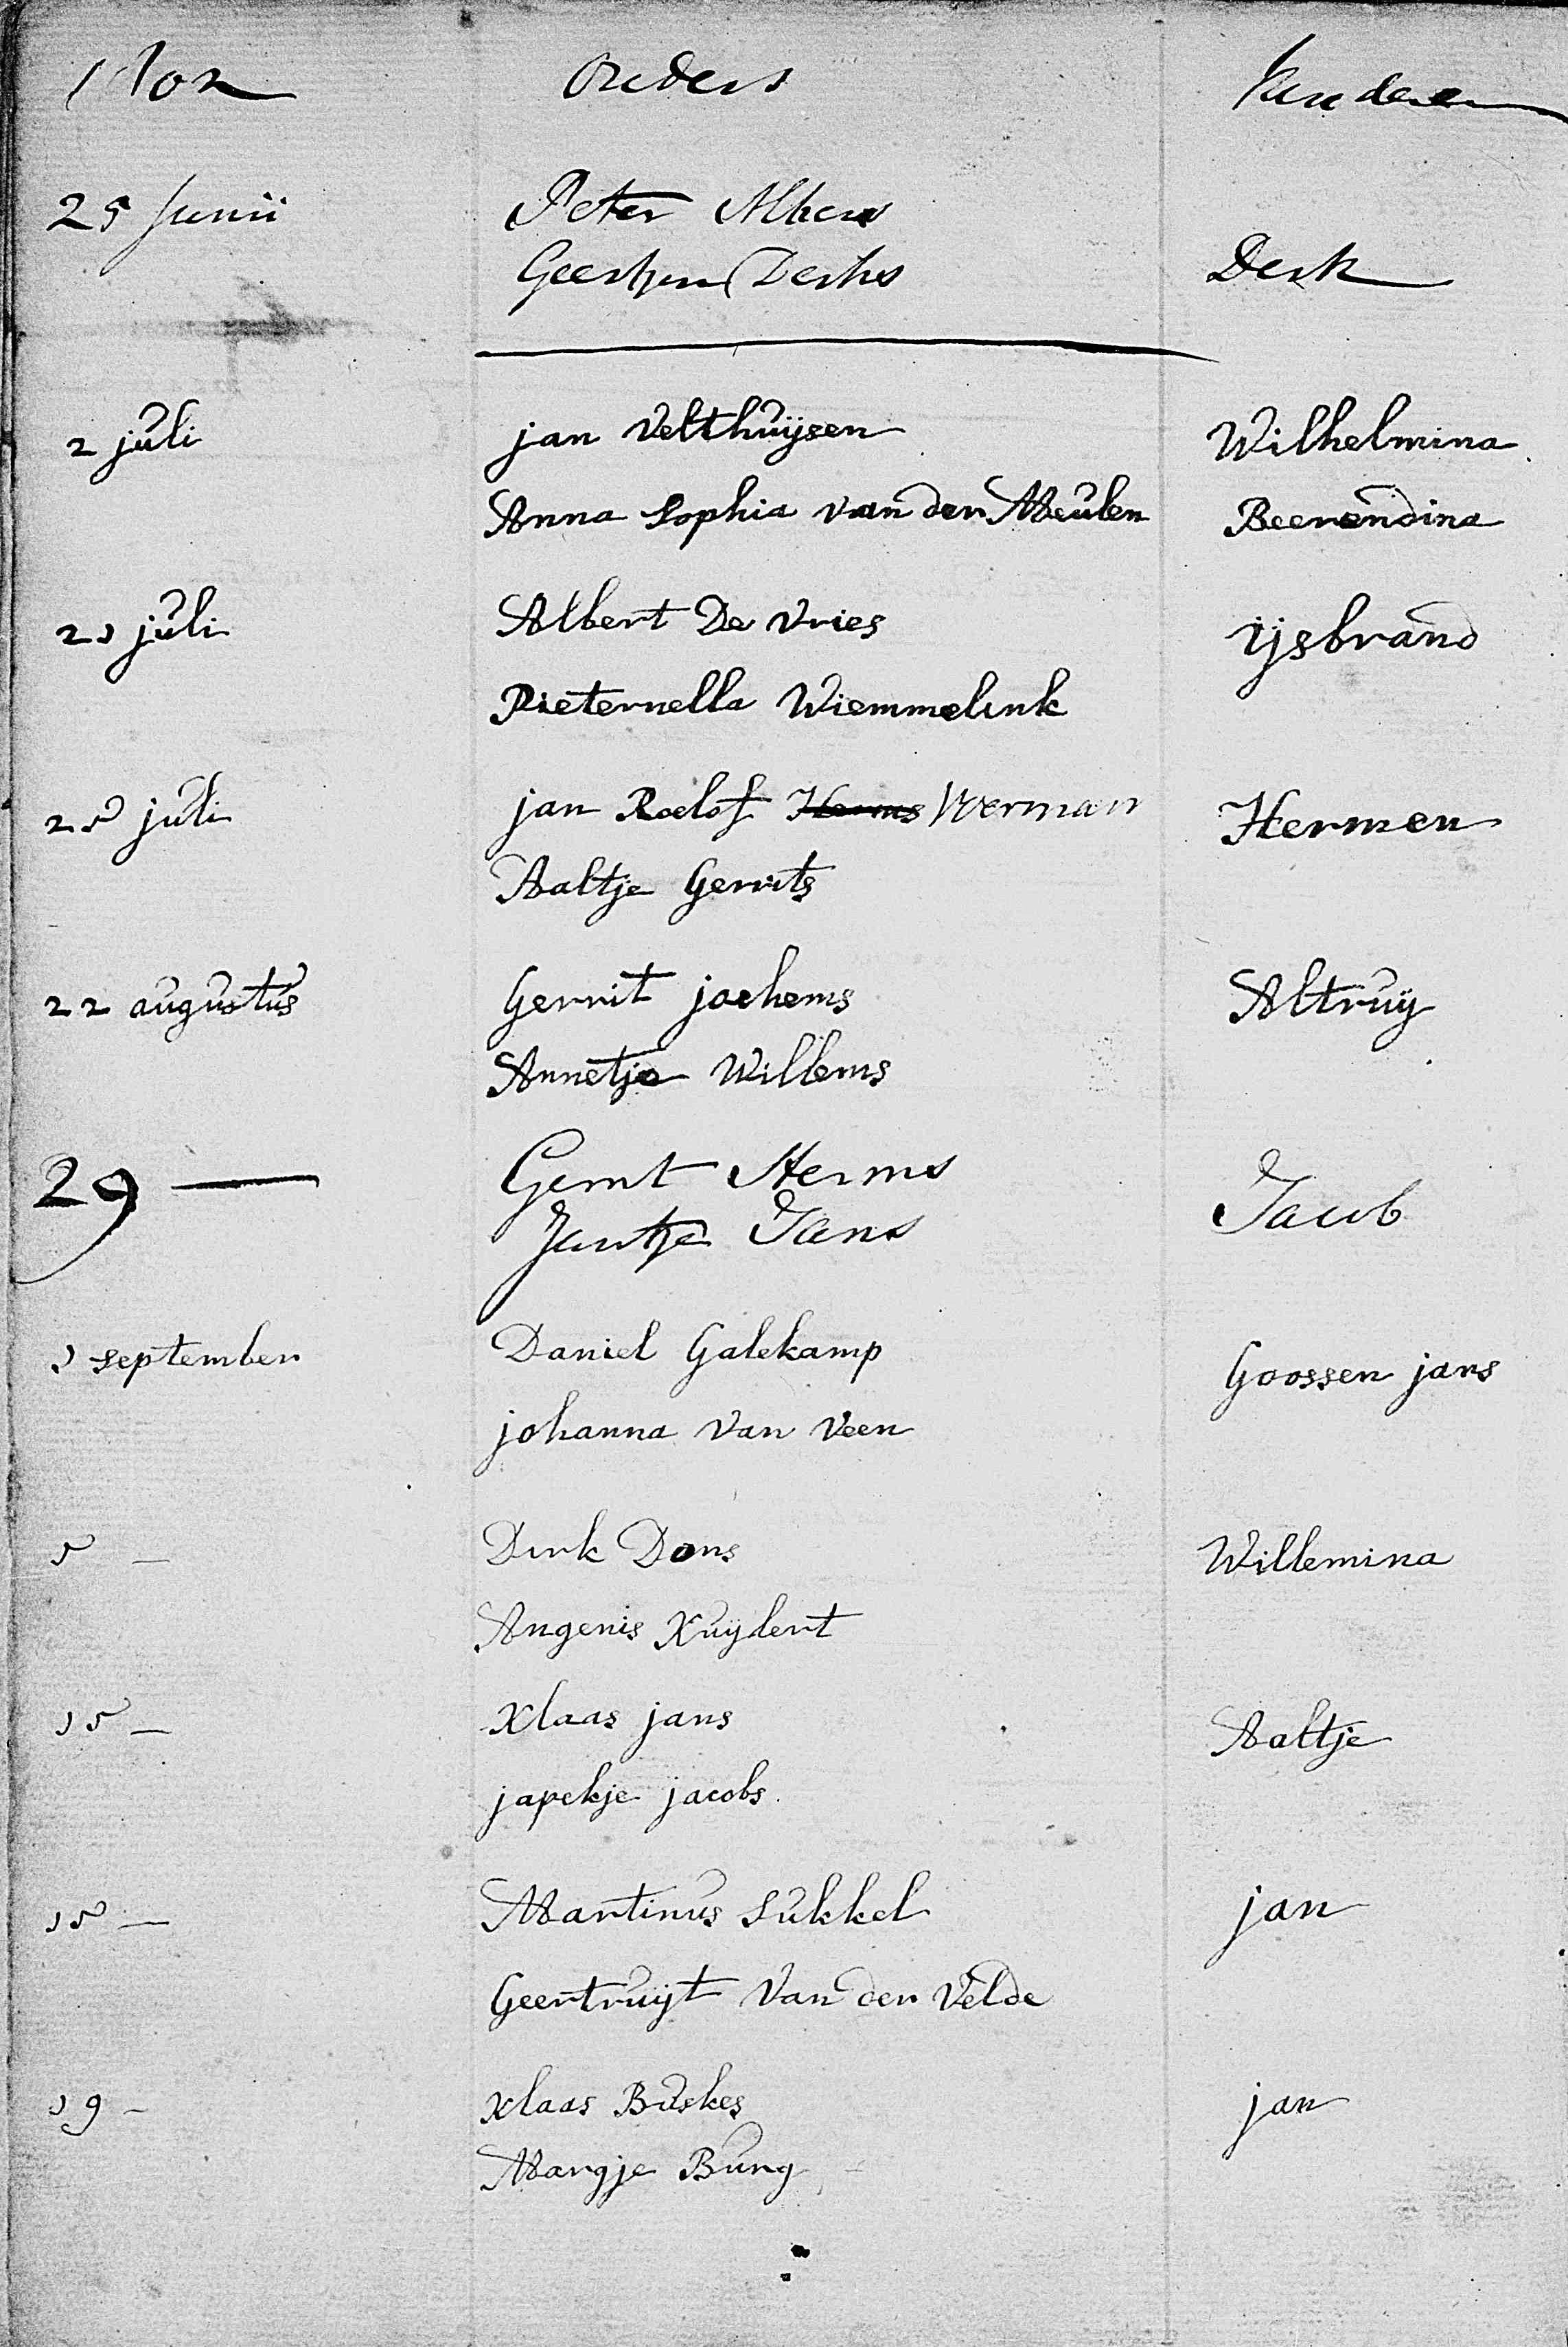 Ouders Kinderen
25 Junii Peter Albers
Geertjen Derks Derk
2 juli jan Velthuijsen Wilhelmina
Anna Sophia van der Meulen Beerendina
21 juli Albert De Vries ijsbrand
Pieternella Wiemmelink
25 juli jan Roelof Herms Werman Hermen
Aaltje Gerrits
22 augustus Gerrit jochems Altruij
Annetje Willems
29 — Gerrit Herms Jacob
Jantje Jans
1 september Daniel Galekamp Goossen jans
johanna van Veen
5 — Dirk Dons Willemina
Angenis Kuijlert
15 — Klaas jans Aaltje
japekje jacobs
15 — Martinus Sukkel jan
Geertruijt Van der Velde
19 - Klaas Buskes jan
Margje Bung